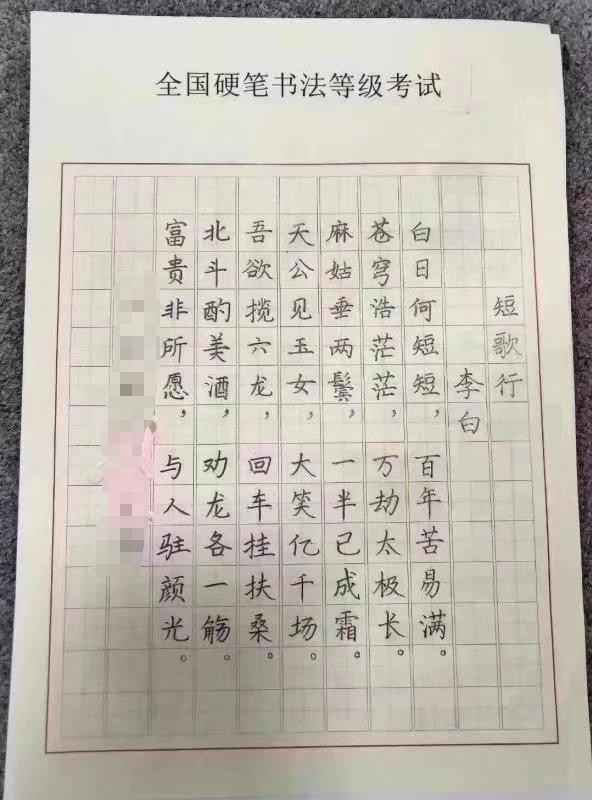 全国硬笔书法等级考试
短歌行
李白
白日何短短，百年苦易满。
苍穹浩茫茫，万劫太极长。
麻姑垂两鬓，一半已成霜。
天公见玉女，大笑亿千场。
吾欲揽六龙，回车挂扶桑。
北斗酌美酒，劝龙各一觞。
富贵非所愿，与人驻颜光。